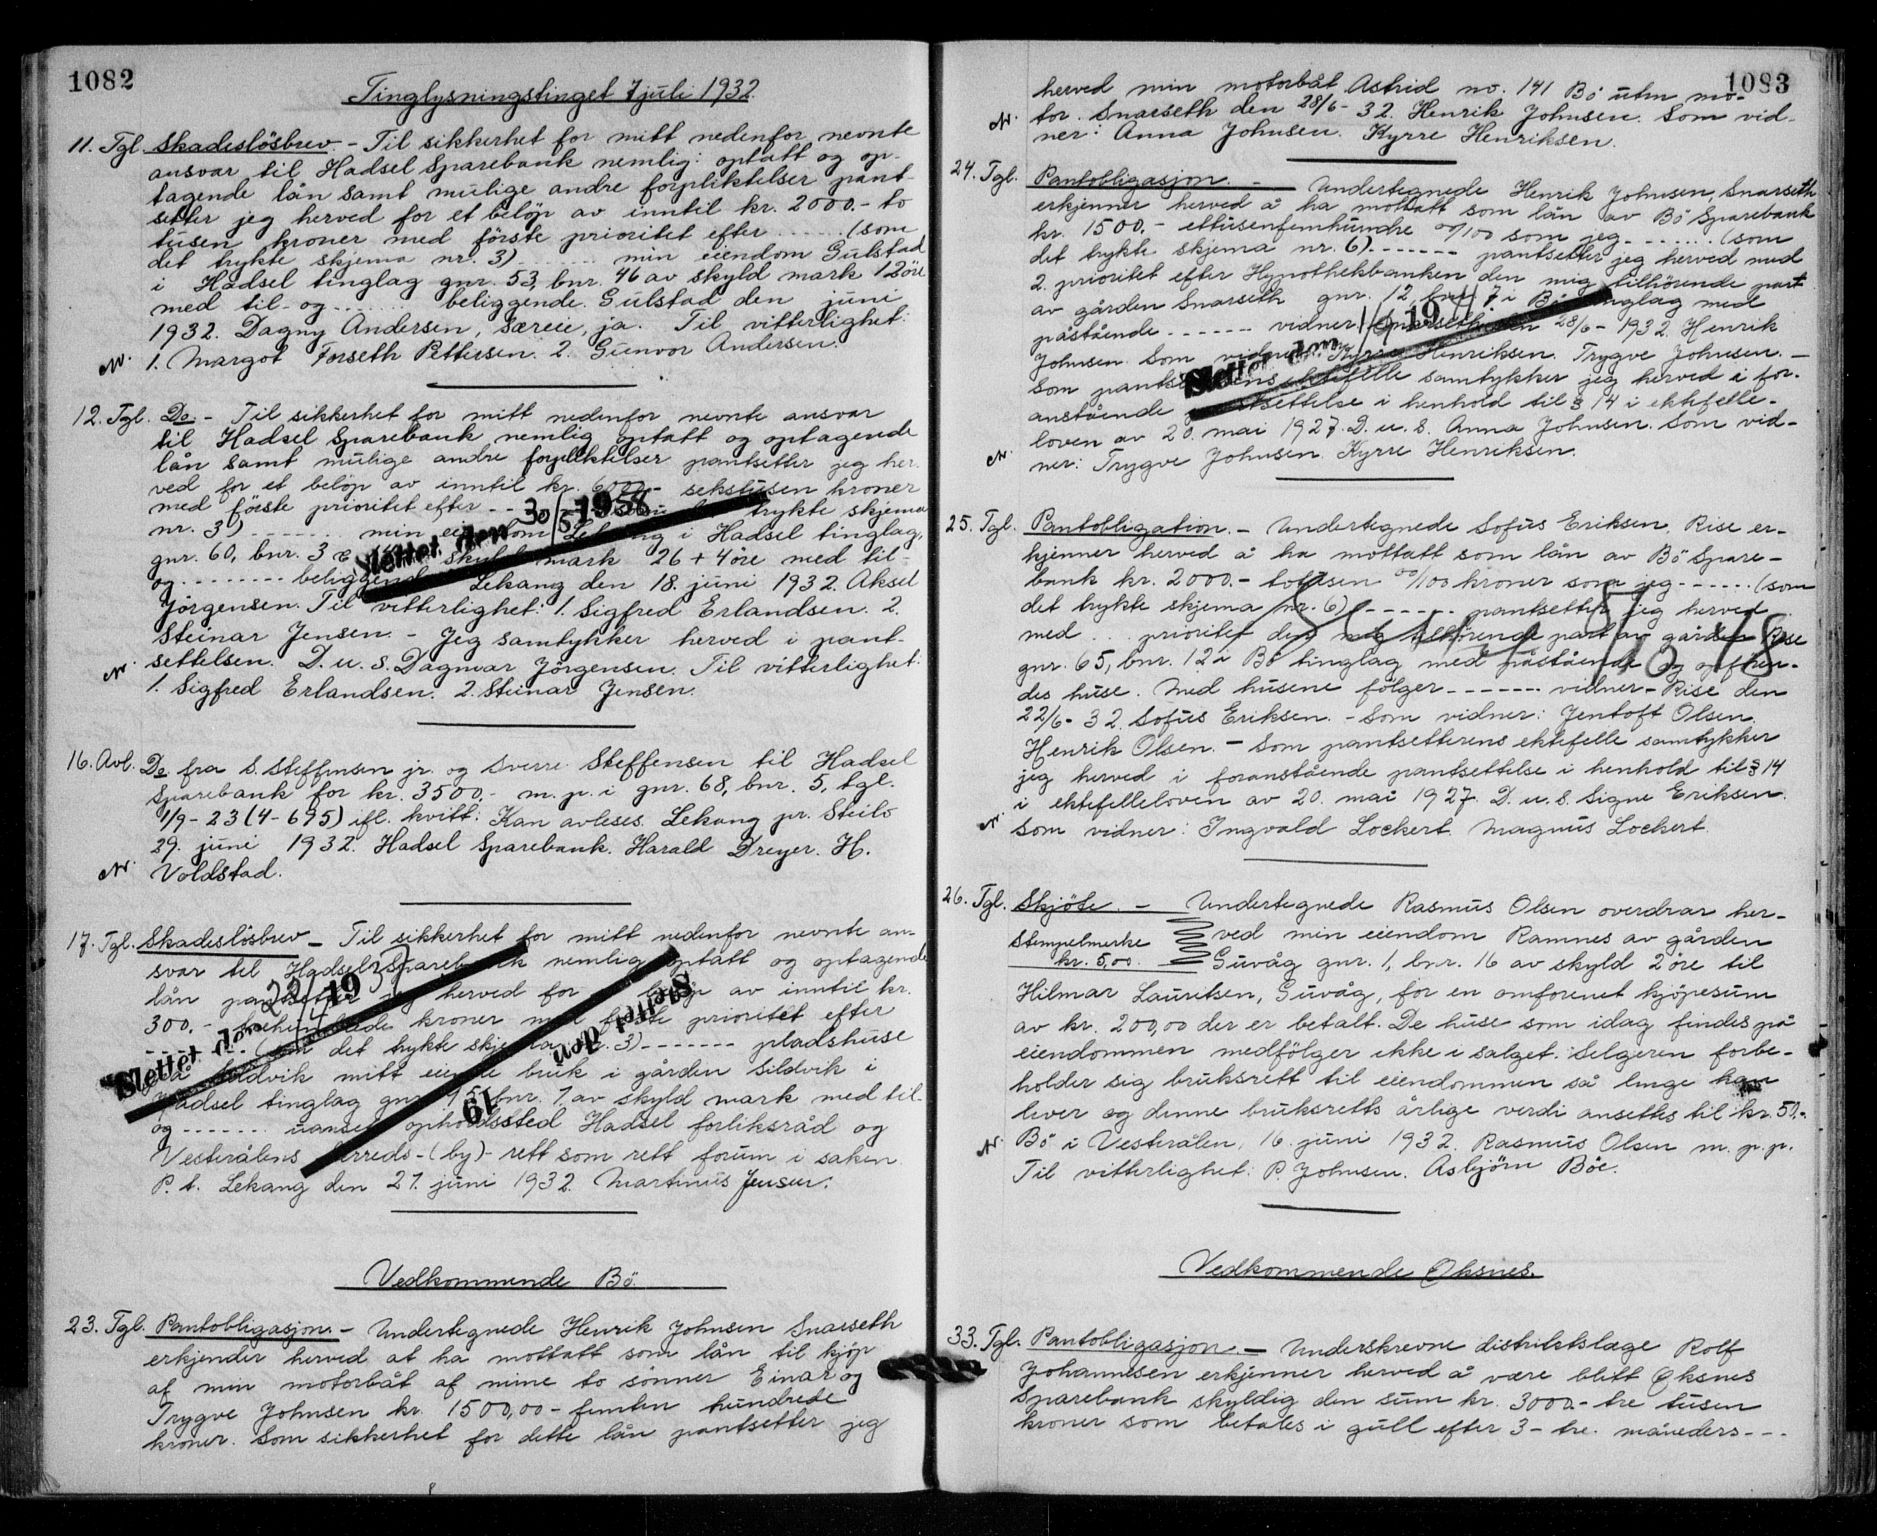 1082
Tinglysningstinget 7 juli 1932.
11. Tgl. Skadeslösbrev - Til sikkerhet for mitt nedenfor nevnte
ansvar til Hadsel Sparebank nemlig: optatt og op-
tagende lån samt mulige andre forpliktelser pant-
setter jeg herved for et belöp av inntil kr. 2000.- to
tusen kroner med förste prioritet efter ...... (som
det trykte skjema nr. 3) ....... min eiendom Gulstad
i Hadsel tinglag gnr. 53, bnr. 46 av skyld mark 12 öre
med til- og ....... beliggende. Gulstad den juni
1932. Dagny Andersen, særeie, ja. Til vitterlighet:
1. Margot Forseth Pettersen. 2. Gunvor Andersen.
12. Tgl. Do. - Til sikkerhet for mitt nedenfor nevnte ansvar
til Hadsel Sparebank nemlig optatt og optagende
lån samt mulige andre forpliktelser pantsetter jeg her-
ved for et belöp av inntil kr. 6000.- sekstusen kroner
med förste prioritet efter - - trykte skjema
nr. 3) ....... min eiendom Lekang i Hadsel tinglag,
gnr. 60, bnr. 3 skyld mark 26 + 4 öre med til-
og ........ beliggende Lekang den 18. juni 1932. Aksel
Jörgensen. Til vitterlighet: 1. Sigfred Erlandsen. 2.
Steinar Jensen. - Jeg samtykker herved i pant-
settelsen. D. u. s. Dagmar Jörgensen. Til vitterlighet:
1. Sigfred Erlandsen. 2. Steinar Jensen.
Slettet den 30/5 1958
16. Avl. Do fra S. Steffensen jr. og Sverre Steffensen til Hadsel
Sparebank for kr. 3500,- m. p. i gnr. 68, bnr. 5, tgl.
1/9-23 (4-695) ifl. kvitt: Kan avleses. Lekang pr. Steilo
29. juni 1932. Hadsel Sparebank. Harald Dreyer. H.
Voldstad.
17. Tgl. Skadeslösbrev - Til sikkerhet for mitt nedenfor nevnte an-
svar til Hadsel Sparebank nemlig optatt og optagende
lån pantsetter jeg herved for belöp av inntil kr.
300.- trehundrede kroner med förste prioritet efter
....... (som det trykte skjema nr. 3) ------- pladshuse
på Sildvik mitt eiende bruk i gården Sildvik i
Hadsel tinglag gnr. bnr. 7 av skyld mark med til-
og ------ uansett opholdssted Hadsel forliksråd og
Vesterålens herreds-(by)-rett som rett forum i saken
P. t. Lekang den 27. juni 1932. Martinus Jensen.
Slettet den 19
Slettet den 19
Vedkommende Bö.
23. Tgl. Pantobligasjon. - Undertegnede Henrik Johnsen Snarseth
erkjender herved at ha mottatt som lån til kjöp
af min motorbåt af mine to sönner Einar og
Trygve Johnsen kr. 1500,00 - femten hundrede
kroner. Som sikkerhet for dette lån pantsetter jeg
1083
herved min motorbåt Astrid no. 141 Bö utm mo-
tor. Snarseth den 28/6-32. Henrik Johnsen. Som vid-
ner: Anna Johnsen. Kyrre Henriksen.
24. Tgl. Pantobligasjon. - Undertegnede Henrik Johnsen, Snarseth
erkjenner herved å ha mottatt som lån av Bö Sparebank
kr. 1500.- ettusenfemhundre 00/100 som jeg ........ (som
det trykte skjema nr. 6). ------ pantsetter jeg herved med
2. prioritet efter Hypothekbanken den mig tilhörende part
av gården Snarseth gnr. 12, bnr. 7 i Bö tinglag med
påstående ------- vidner Snarseth den 28/6-1932. Henrik
Johnsen. Som vidner: Kyrre Henriksen. Trygve Johnsen. -
Som pantsetterens ektefelle samtykker jeg herved i for-
anstående pantsettelse i henhold til § 14 i ektefelle-
loven av 20. mai 1927. D. u. s. Anna Johnsen. Som vid-
ner: Trygve Johnsen. Kyrre Henriksen.
Slettet den 19
25. Tgl. Pantobligation. - Undertegnede Sofus Eriksen, Rise er-
kjenner herved å ha mottatt som lån av Bö Spare-
bank kr. 2000.- totusen 00/100 kroner som jeg ...... (som
det trykte skjema nr. 6) ------ pantsetter jeg herved
med ... prioritet den mig tilhörende part av gården Rise
gnr. 65, bnr. 12 i Bö tinglag med påstående og opfören-
des huse. Med husene fölger ------- vidner - Rise den
22/6-32. Sofus Eriksen. - Som vidner: Jentoft Olsen.
Henrik Olsen. - Som pantsetterens ektefelle samtykker
jeg herved i foranstående pantsettelse i henhold til § 14
i ektefelleloven av 20. mai 1927. D. u. s. Signe Eriksen.
Som vidner: Ingvald Lockert. Magnus Lockert.
26. Tgl. Skjöte. - Undertegnede Rasmus Olsen overdrar her-
Stempelmerke kr. 5,00. ved min eiendom Ramnes av gården
Guvåg gnr. 1, bnr. 16 av skyld 2 öre til
Hilmar Lauritsen, Guvåg, for en omforenet kjöpesum
av kr. 200,00 der er betalt. De huse som idag findes på
eiendommen medfölger ikke i salget. Selgeren forbe-
holder sig bruksrett til eiendommen så lenge han
lever og denne bruksretts årlige verdi ansettes til kr. 50.-
Bö i Vesterålen, 16. juni 1932. Rasmus Olsen m. p. p.
Til vitterlighet: P. Johnsen. Asbjörn Böe.
Vedkommende Öksnes.
33. Tgl. Pantobligasjon. - Underskrevne distriktslæge Rolf
Johannesen erkjenner herved å være blitt Öksnes
Sparebank skyldig den sum kr. 3000.- tre tusen
kroner som betales i gull efter 3 - tre. måneders ---